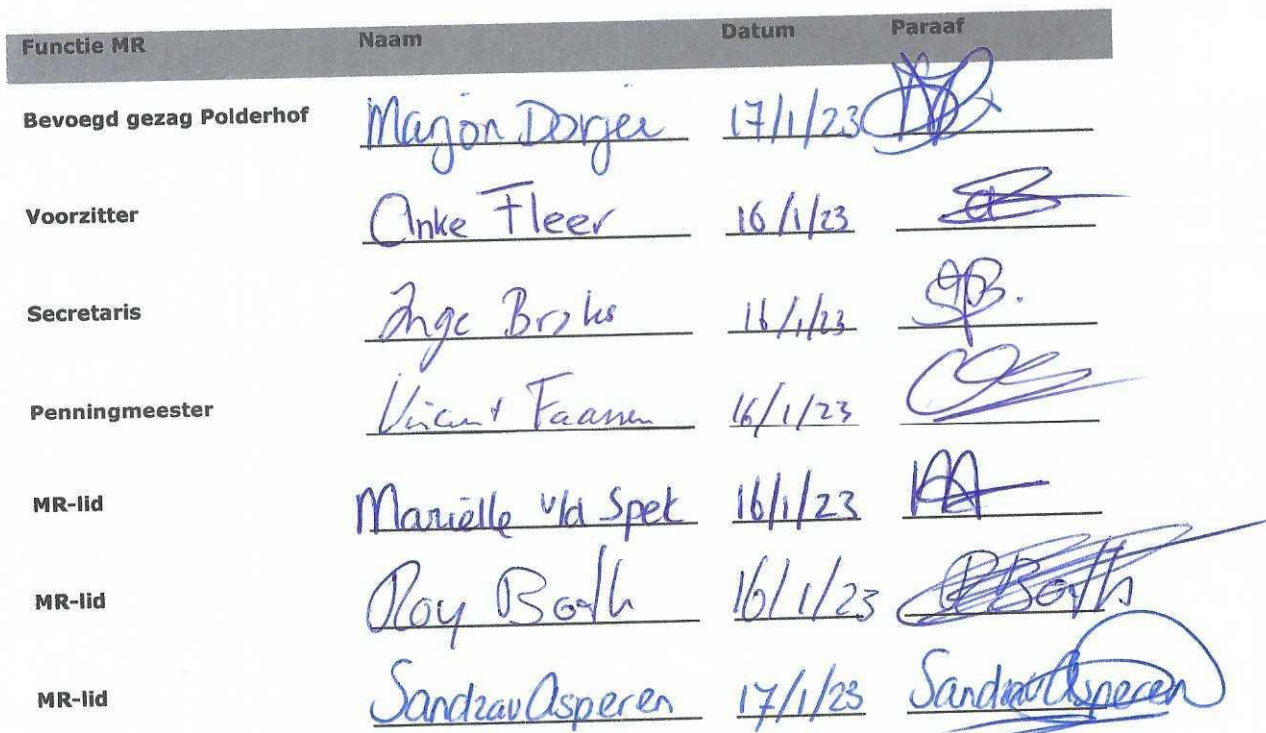 Functie MR Naam Datum Paraaf
Bevoegd gezag Polderhof Marjon Dorjee 17/1/23
Voorzitter Anke Fleer 16/1/23
Secretaris Inge 16/1/23 JB.
Penningmeester Vincent Faassen 16/1/23
MR-lid Mariëlle v/d Spek 16/1/23
MR-lid Roy Booth 16/1/23 RBooth
MR-lid Sandra v Asperen 17/1/23 Sandra v Asperen